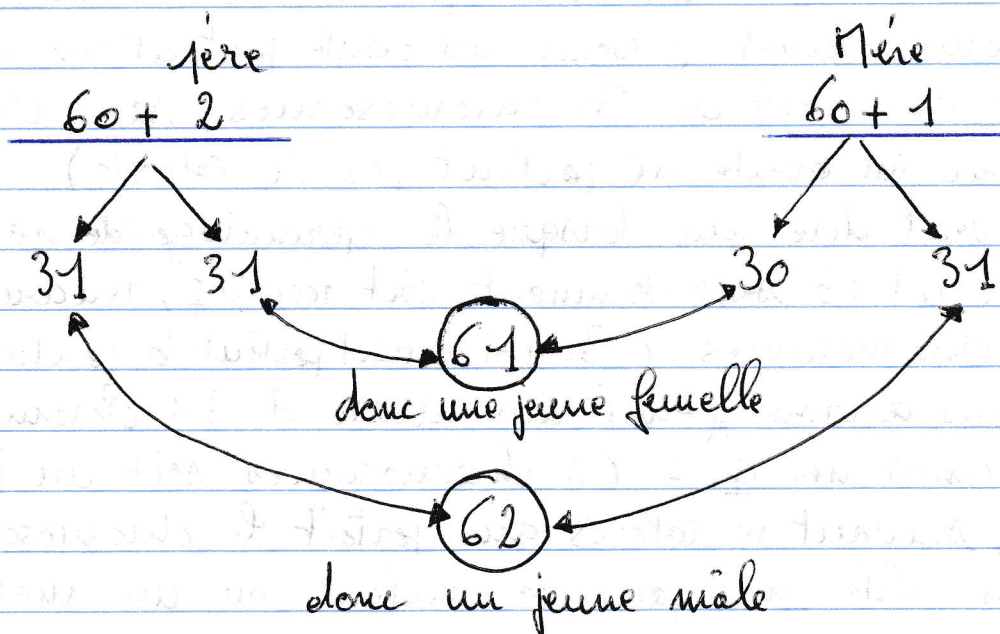 père Mére
60 + 2 60 + 1
31 31 30 31
61
donc une jeune femelle
62
donc un jeune mâle